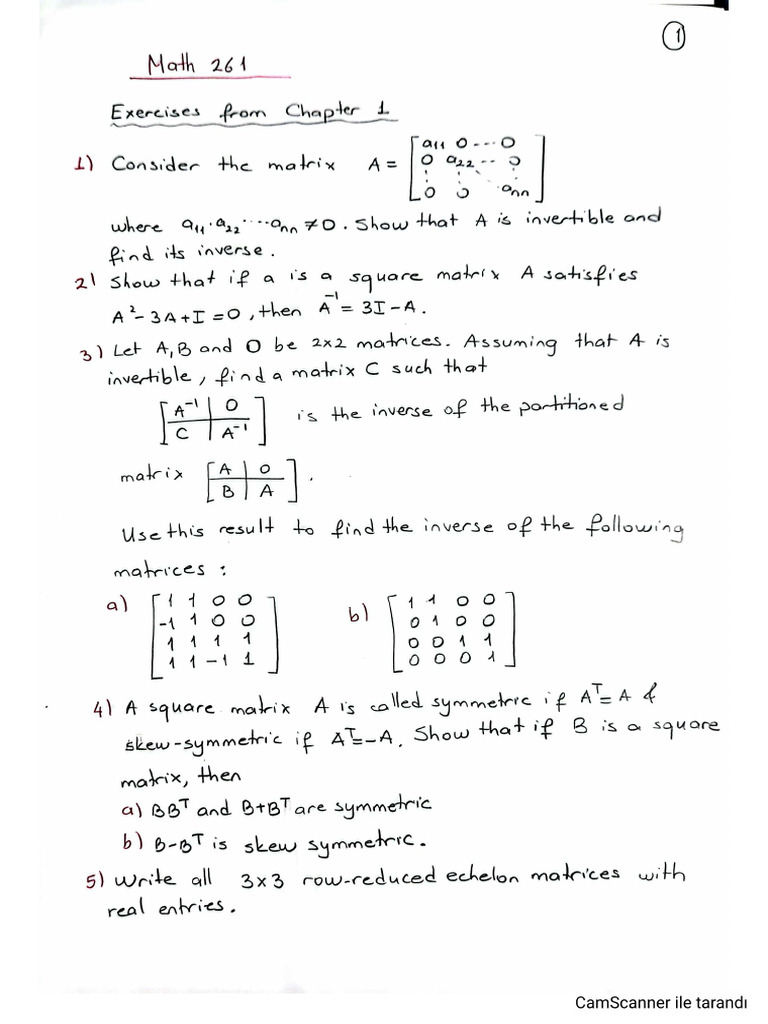 1
Math 261
Exercises from Chapter 1
1) Consider the matrix A = [a11 0 --- 0
0 a22 -- 0
⋮ ⋮ ⋱ ⋮
0 0 ann]
where a11·a22····ann ≠ 0. Show that A is invertible and
find its inverse.
2) Show that if a is a square matrix A satisfies
A² - 3A + I = 0, then A⁻¹ = 3I - A.
3) Let A, B and 0 be 2x2 matrices. Assuming that A is
invertible, find a matrix C such that
[A⁻¹ | 0
C | A⁻¹] is the inverse of the partitioned
matrix [A | 0
B | A].
Use this result to find the inverse of the following
matrices :
a) [1 1 0 0
-1 1 0 0
1 1 1 1
1 1 -1 1]
b) [1 1 0 0
0 1 0 0
0 0 1 1
0 0 0 1]
4) A square matrix A is called symmetric if Aᵀ = A &
skew-symmetric if Aᵀ = -A. Show that if B is a square
matrix, then
a) BBᵀ and B+Bᵀ are symmetric
b) B-Bᵀ is skew symmetric.
5) Write all 3x3 row-reduced echelon matrices with
real entries.
CamScanner ile tarandı